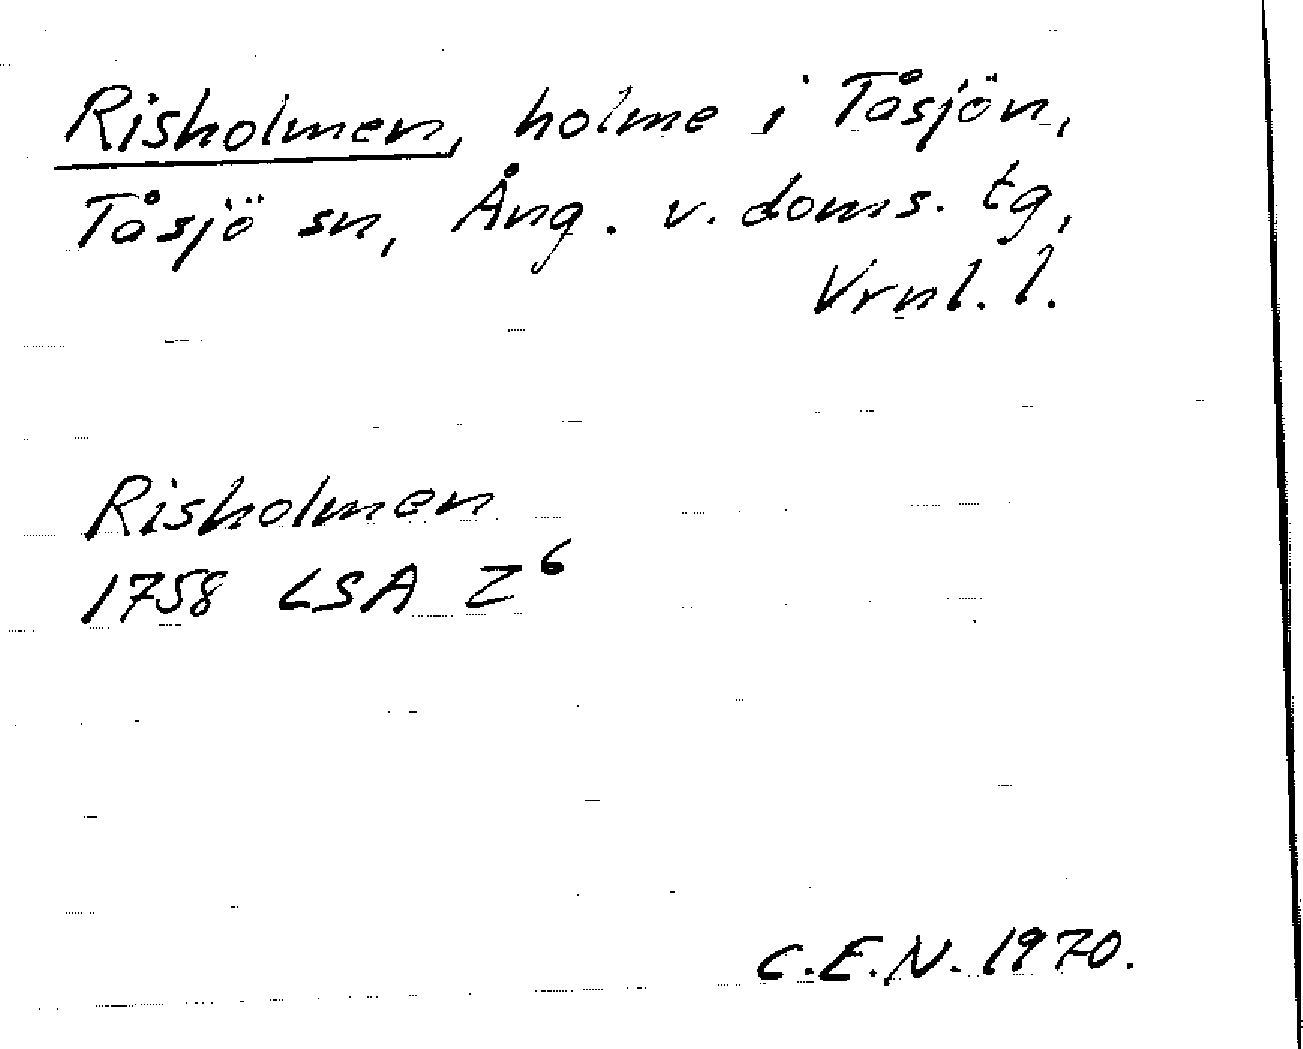 Risholmen, holme i Tåsjön,
Tåsjö sn, Ång. v. doms. tg,
Vrnl. l.
Risholmen
1758 LSA Z⁶
C.E.N. 1970.